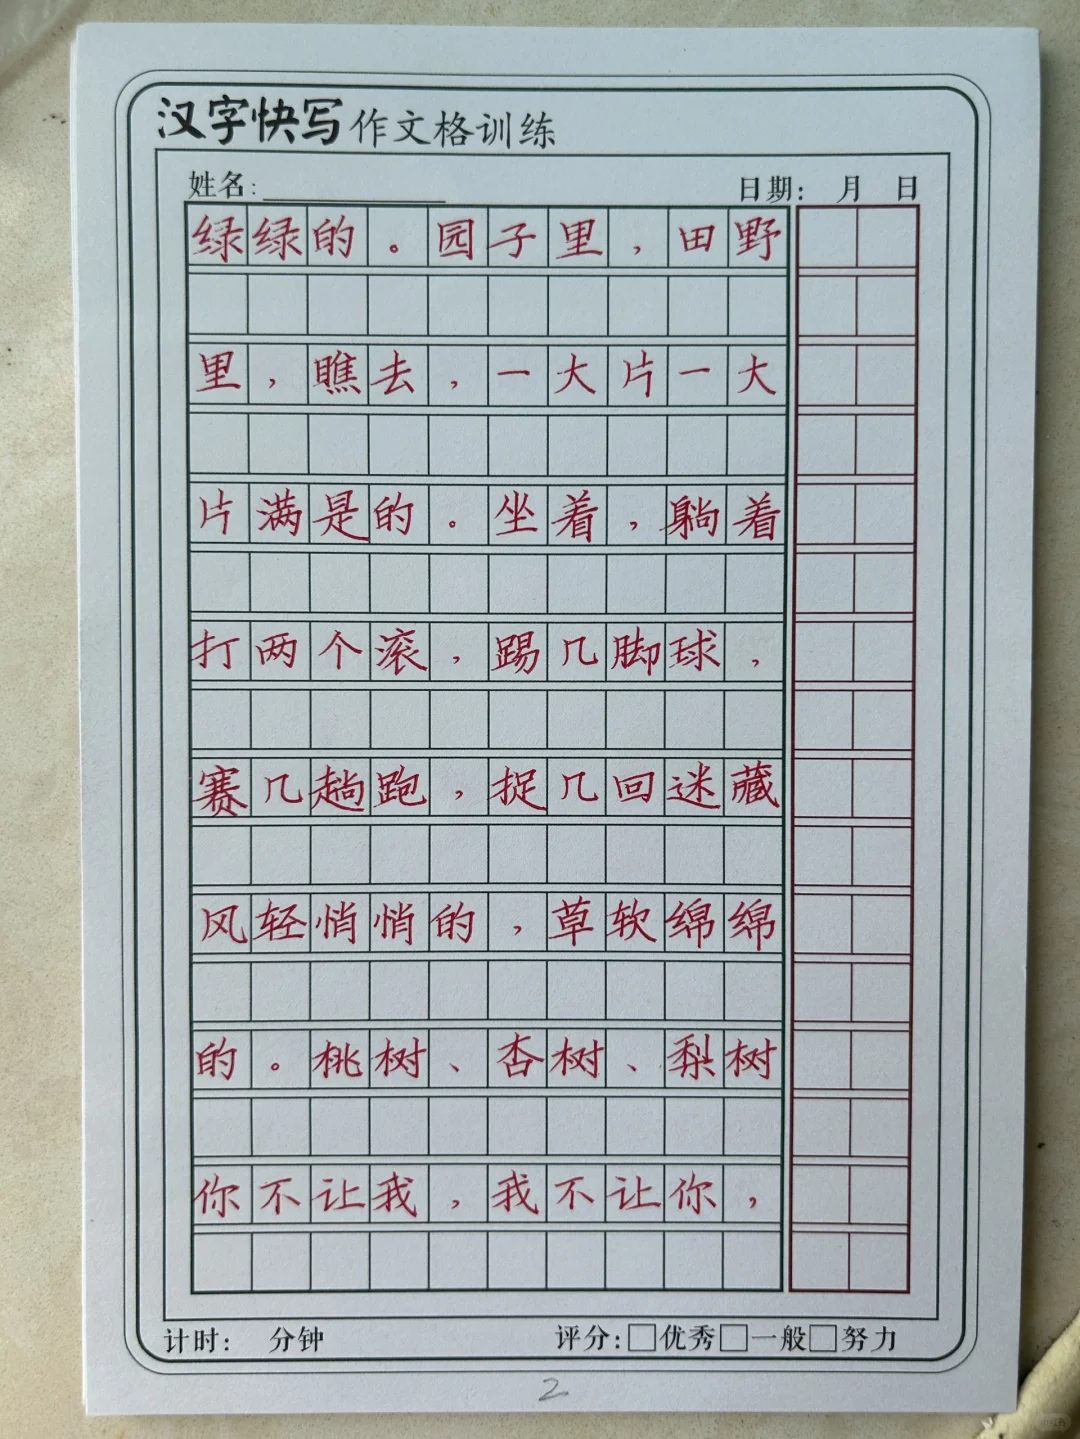 汉字快写作文格训练
姓名: 日期: 月 日
绿绿的。园子里,田野
里,瞧去,一大片一大
片满是的。坐着,躺着
打两个滚,踢几脚球,
赛几趟跑,捉几回迷藏
风轻悄悄的,草软绵绵
的。桃树、杏树、梨树
你不让我,我不让你,
计时: 分钟 评分:□优秀□一般□努力
2